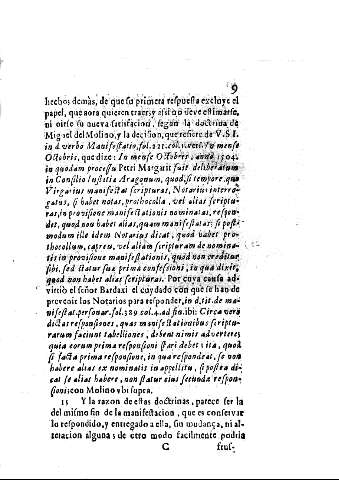 9
hechos demàs, de que su primera respuesta excluye el
papel, que aora quieren traer, y assi no deve estimarse,
ni oirse su nueva satisfacion, segun la doctrina de
Miguel del Molino, y la decision, que refiere de V.S.I.
in d verbo Manifestatio, fol. 221. col. 1. vers. In mense
Octobris, que dize: In mense Octobris, anno 1504.
in quodam processu Petri Margarit fuit deliberatum
in Consilio Iustitiæ Aragonum, quod, si tempore quo
Virgarius manifestat scripturas, Notarius interro-
gatus, si habet notas, prothocolla, vel alias scriptu-
ras, in provisione manifestationis nominatas, respon-
det, quod non habet alias, quam manifestatas: si post-
modum ille idem Notarius dicat, quod habet pro-
thocollum, capreu, vel aliam scripturam de nomina-
tis in provisione manifestationis, quod non creditur
sibi, sed statur suæ primæ confessioni, in qua dixit,
quod non habet alias scripturas. Por cuya causa ad-
virtiò el señor Bardaxi el cuydado con que se han de
prevenir los Notarios para responder, in d. tit. de ma-
nifestat. personar. fol. 389. col. 4. ad fin. ibi: Circa verò
dictas responsiones, quas manifestationibus scriptu-
rarum faciunt tabelliones, debent nimis advertere,
quia eorum primæ responsioni stari debet; ita, quod
si facta prima responsione, in qua respondeat, se non
habere alias ex nominatis in appellitu, si postea di-
cat se alias habere, non statur eius secundæ respon-
sioni; con Molino ubi supra.
15 Y la razon de estas doctrinas, parece ser la
del mismo fin de la manifestacion, que es conservar
lo respondido, y entregado a ella, su mudança, ni al-
teracion alguna; de otro modo facilmente podria
C frus-